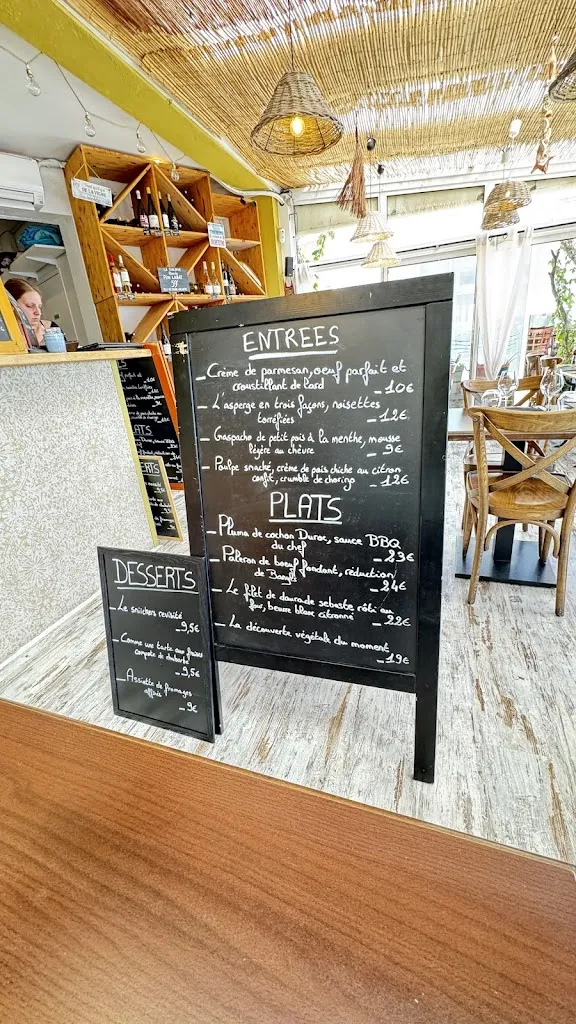 ENTREES
_ Crème de parmesan, oeuf parfait et
croustillant de lard _ 10€
_ L'asperge en trois façons, noisettes
torréfiées _ 12€
_ Gaspacho de petit pois à la menthe, mousse
légère au chèvre _ 9€
_ Poulpe snacké, crème de pois chiche au citron
confit, crumble de chorizo _ 12€
PLATS
_ Pluma de cochon Duroc, sauce BBQ
du chef _ 23€
_ Paleron de boeuf fondant, réduction
de Banyuls _ 24€
_ Le filet de daurade sebaste rôti au
four, beurre blanc citronné _ 22€
_ La découverte végétale du moment
_ 19€
DESSERTS
_ Le snickers revisité
_ 9,5€
_ Comme une tarte aux fraises
compotée de rhubarbe
_ 9,5€
_ Assiette de fromages
affinés
_ 9€